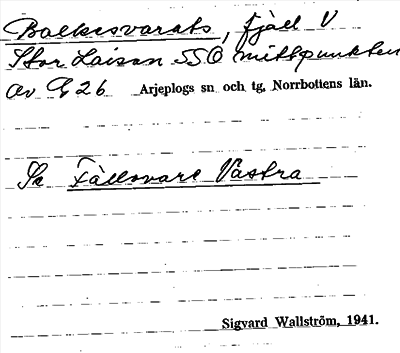 Balkesvarats, fjäll V
Stor Laisan SSO mittpunkten
av G 26 Arjeplogs sn och tg, Norrbottens län.
Se Fällovare Västra
Sigvard Wallström, 1941.